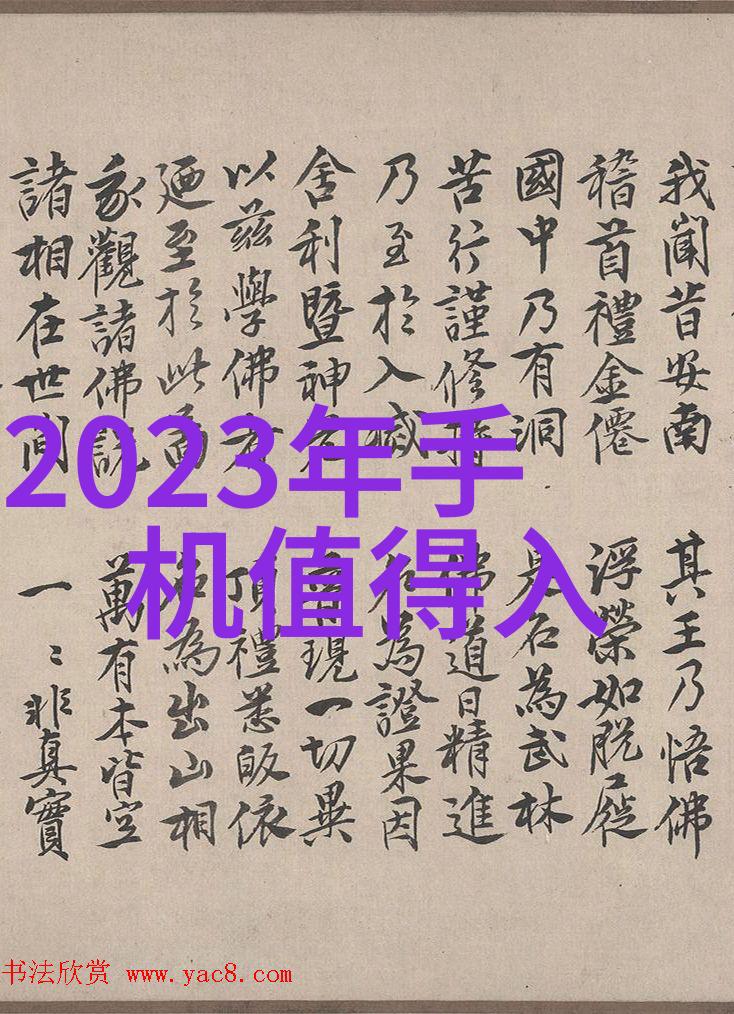 我聞昔安南 其王乃悟佛
稽首禮金僊 浮榮如脫屣
國中乃有洞 是名為武林
苦行謹修持 佛道日精進
乃至於入滅 名為證果因
舍利暨神 普現一切異
以茲學佛者 頂禮悉皈依
廼至於此 名為出山相
我觀諸佛說 萬有本皆空
諸相在世間 一〻非真實
2023年手
机值得入
书法欣赏 www.yac8.com